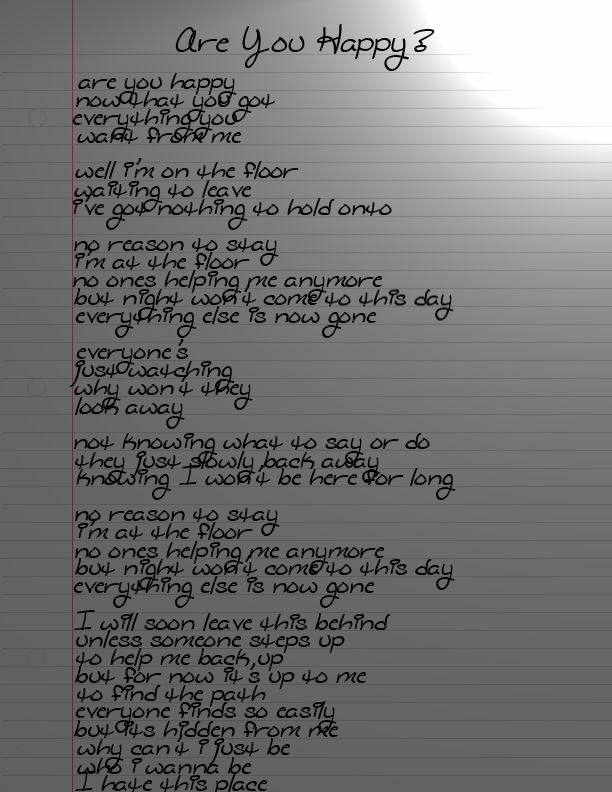 Are You Happy?
are you happy
now that you got
everything you
want from me
well i'm on the floor
waiting to leave
i've got nothing to hold onto
no reason to stay
i'm at the floor
no ones helping me anymore
but night won't come to this day
everything else is now gone
everyone's
just watching
why won't they
look away
not knowing what to say or do
they just slowly back away
knowing I won't be here for long
no reason to stay
i'm at the floor
no ones helping me anymore
but night won't come to this day
everything else is now gone
I will soon leave this behind
unless someone steps up
to help me back,up
but for now it's up to me
to find the path
everyone finds so easily
but its hidden from me
why can't i just be
who i wanna be
I hate this place